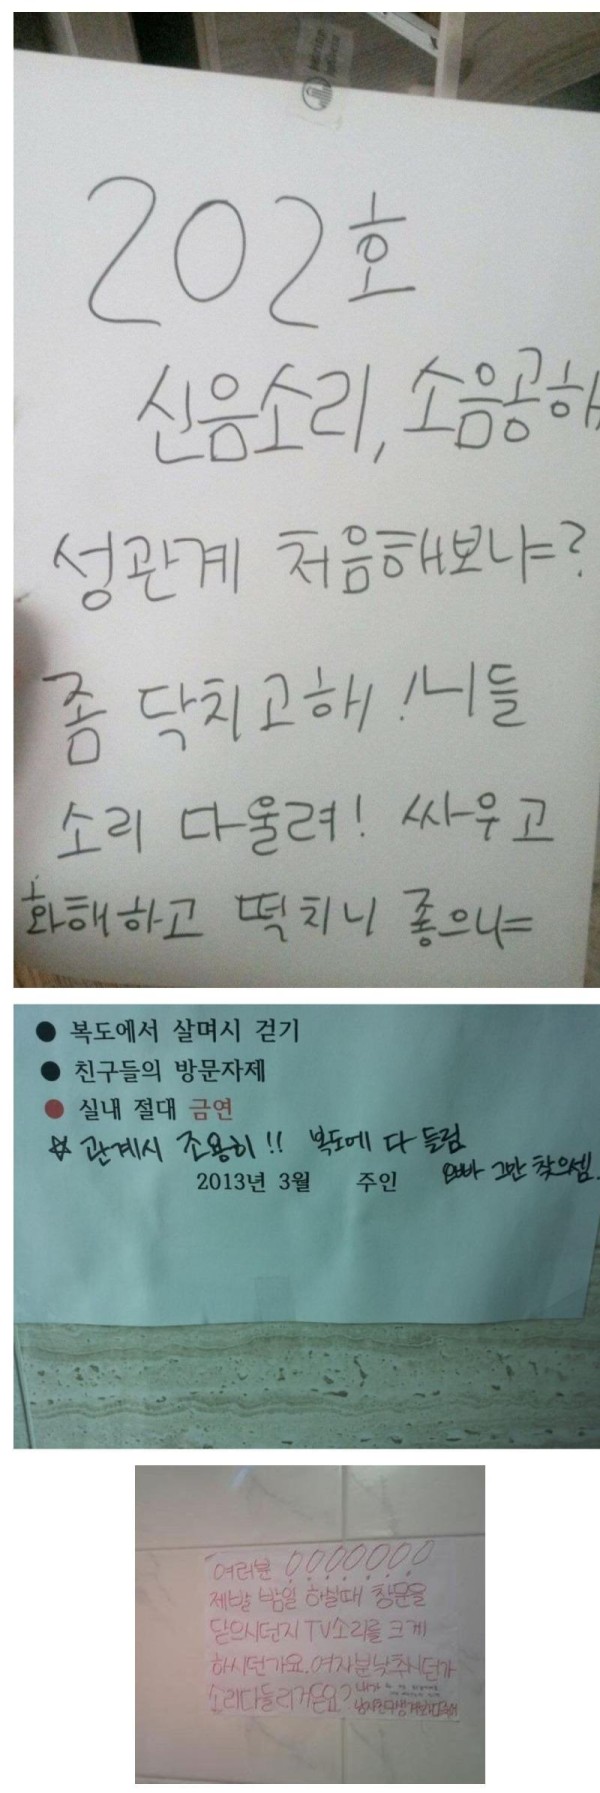 202호
신음소리, 소음공해
성관계 처음해보냐=?
좀 닥치고해! 니들
소리 다울려! 싸우고
화해하고 떡치니 좋으냐=
● 복도에서 살며시 걷기
● 친구들의 방문자제
● 실내 절대 금연
☆ 관계시 조용히!! 복도에 다 들림
오빠 그만 찾으셈.
2013년 3월 주인
여러분 !!!!!!!
제발 밤일 하실때 창문을
닫으시던지 TV소리를 크게
하시던가요. 여자분낮추시던가
소리다들리거든요?